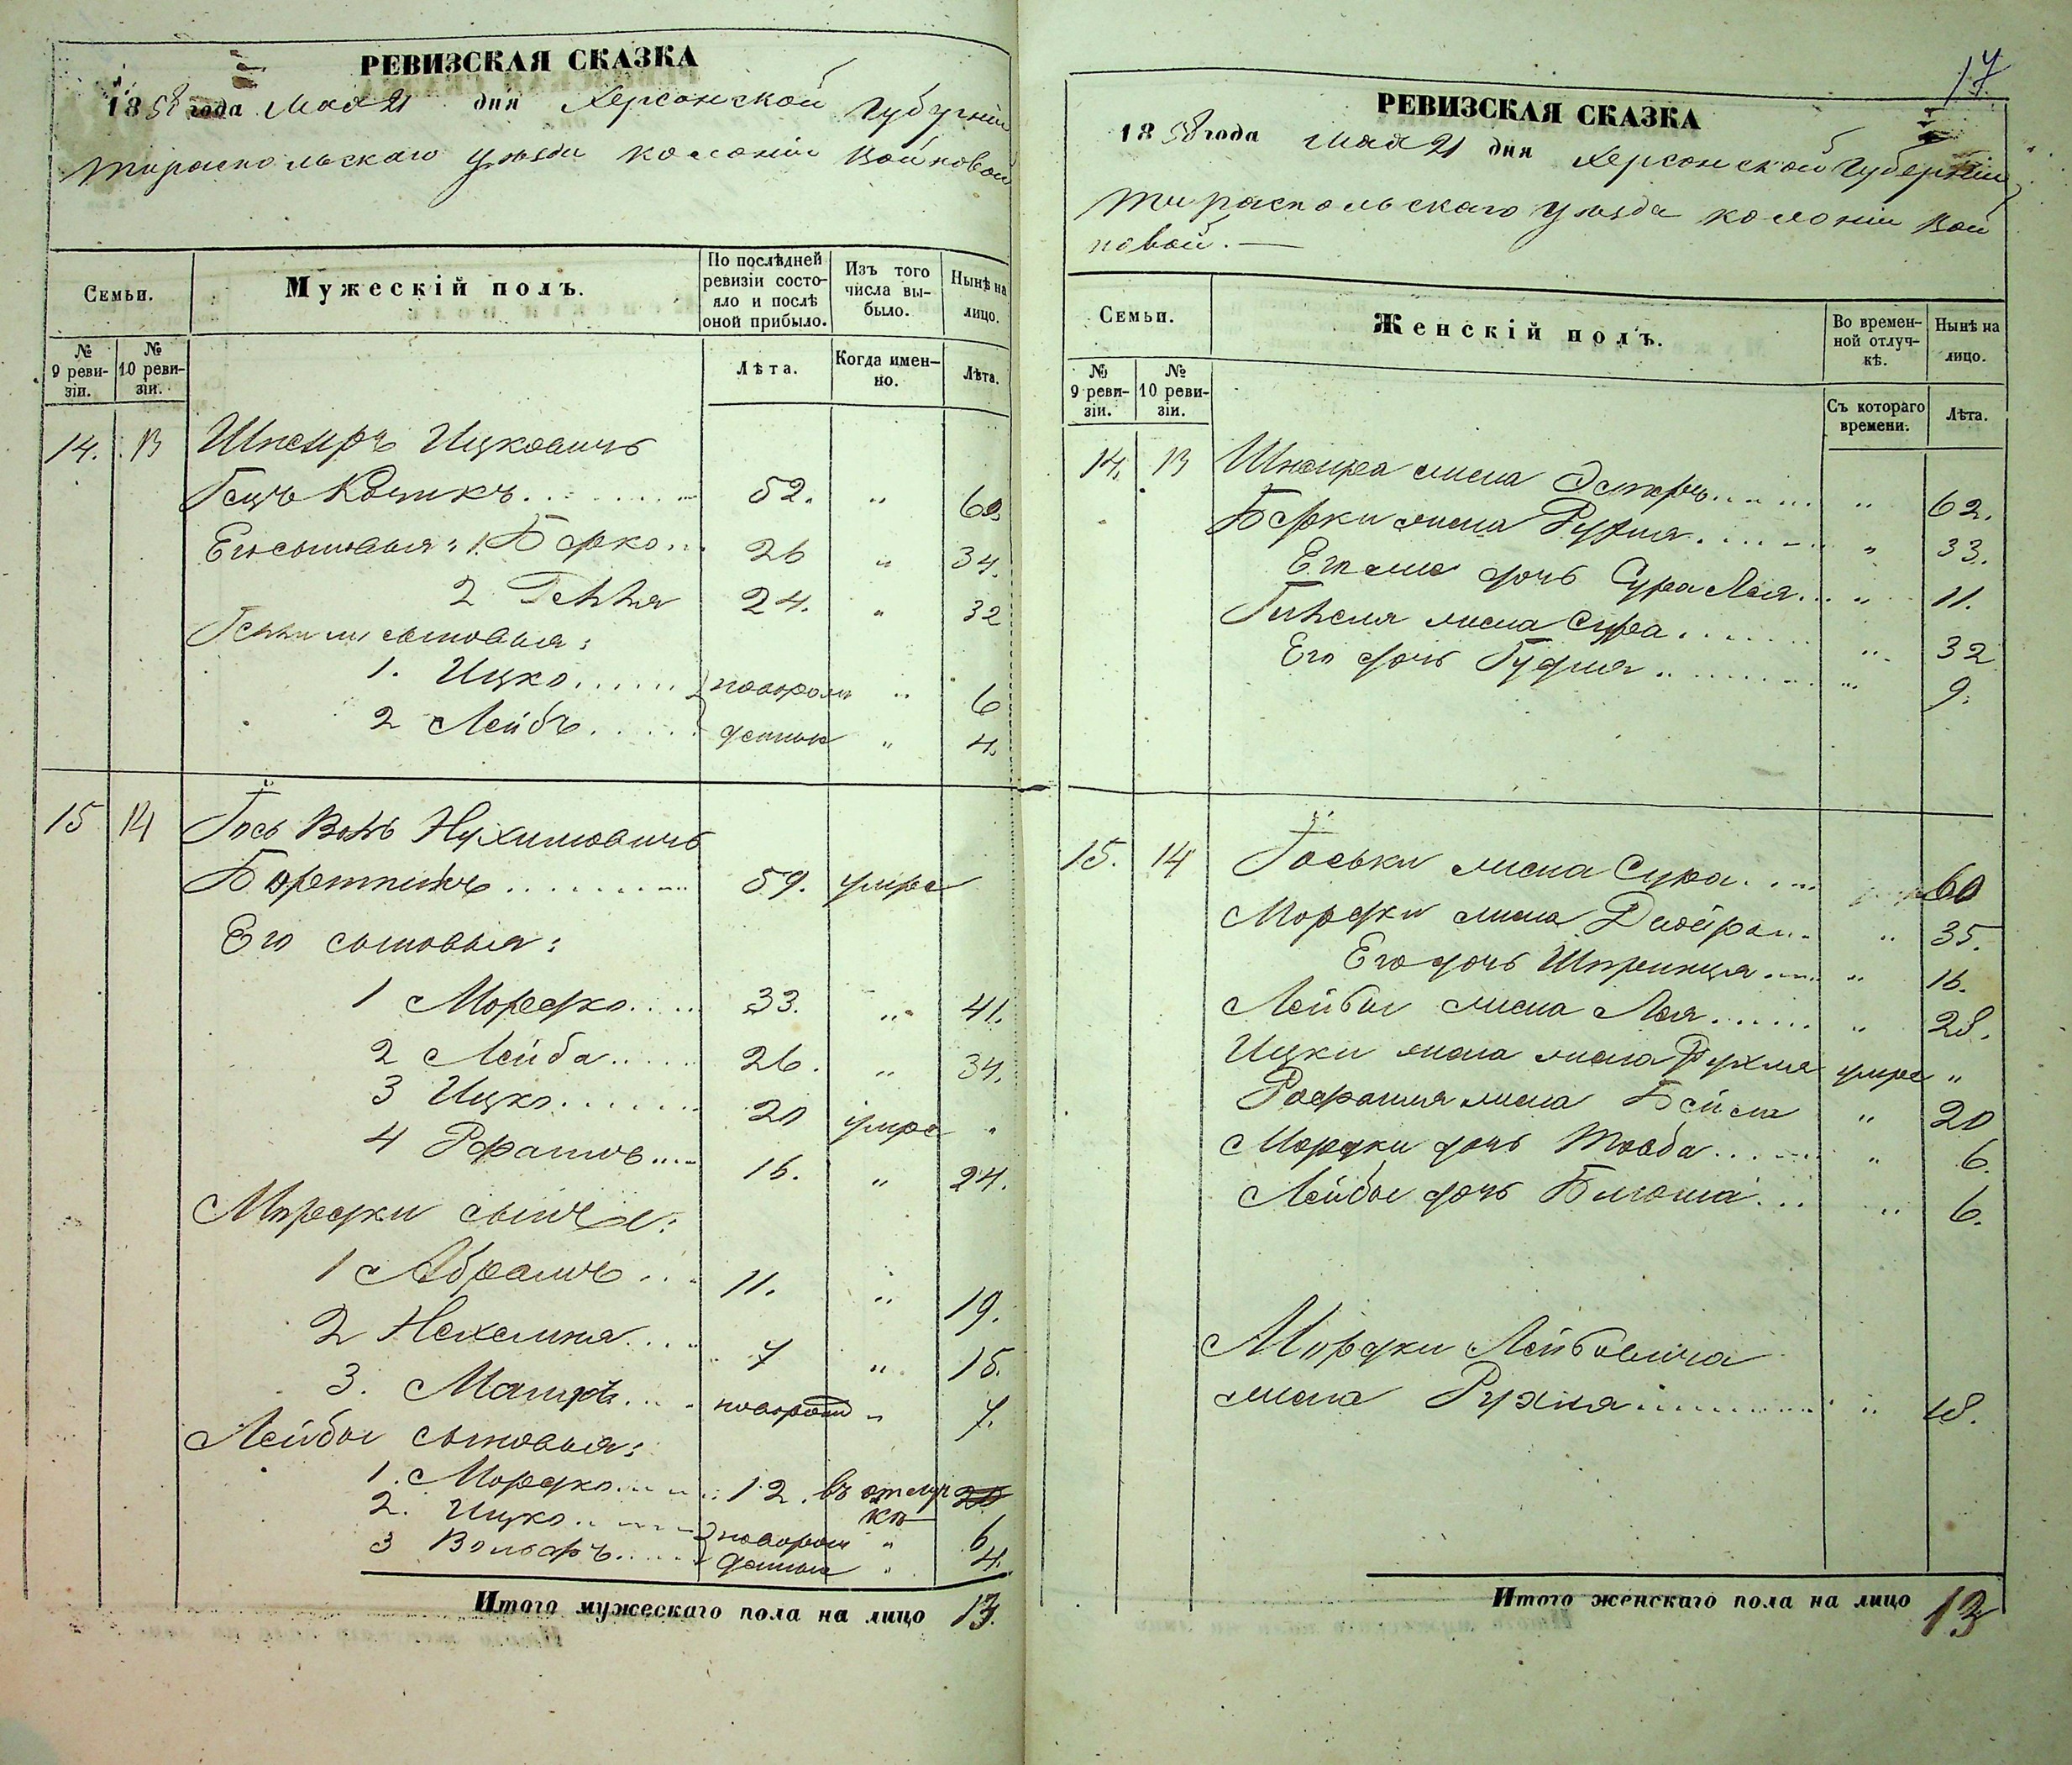 РЕВИЗСКАЯ СКАЗКА
1858 года Мая 21 дня Херсонской Губерніи
Тираспольскаго уѣзда колоніи Войновой
Семьи.
Мужескій полъ.
По послѣдней ревизіи состояло и послѣ оной прибыло.
Изъ того числа выбыло.
Нынѣ на лицо.
№ 9 ревизіи.
№ 10 ревизіи.
Лѣта.
Когда именно.
Лѣта.
14. 13 Шнеиръ Ицковичъ
52. " 60
Его сыновья: 1. Берко 26 " 34.
2 24. " 32
сыновья:
1. Ицко новорож " 6
2 Лейбъ денные " 4.
15 14 Іось Нухимовичъ
59. умре
Его сыновья:
1 Мордко 33. " 41.
2 Лейба 26. " 34.
3 Ицко 20 умре "
4 16. " 24.
Мордки сыны:
1 Абрамъ 11. " 19.
2 7 " 15.
3. новорож " 7.
Лейбы сыновья:
1. Мордко 12. въ отлучкѣ 20
2. Ицко новорож " 6
3 Вольфъ денные " 4.
Итого мужескаго пола на лицо 13.
17.
РЕВИЗСКАЯ СКАЗКА
1858 года Мая 21 дня Херсонской Губерніи
Тираспольскаго уѣзда колоніи Вой
новой.
Семьи.
Женскій полъ.
Во временной отлучкѣ.
Нынѣ на лицо.
№ 9 ревизіи.
№ 10 ревизіи.
Съ котораго времени.
Лѣта.
14. 13 Шнеира жена Эстеръ " 62.
Берки жена Рухля " 33.
Его дочь Сура Лея " 11.
жена Сура " 32
Его дочь " 9.
15. 14 Іоськи жена Сура 60
Мордки жена Двойра " 35.
Его дочь Шпринца " 16.
Лейбы жена Лея " 28.
Ицки жена жена Рухля умре "
жена Бейла " 20
Мордки дочь Тоаба " 6.
Лейбы дочь Блюма " 6.
Мордки Лейбовича
жена Рухля " 18.
Итого женскаго пола на лицо 13